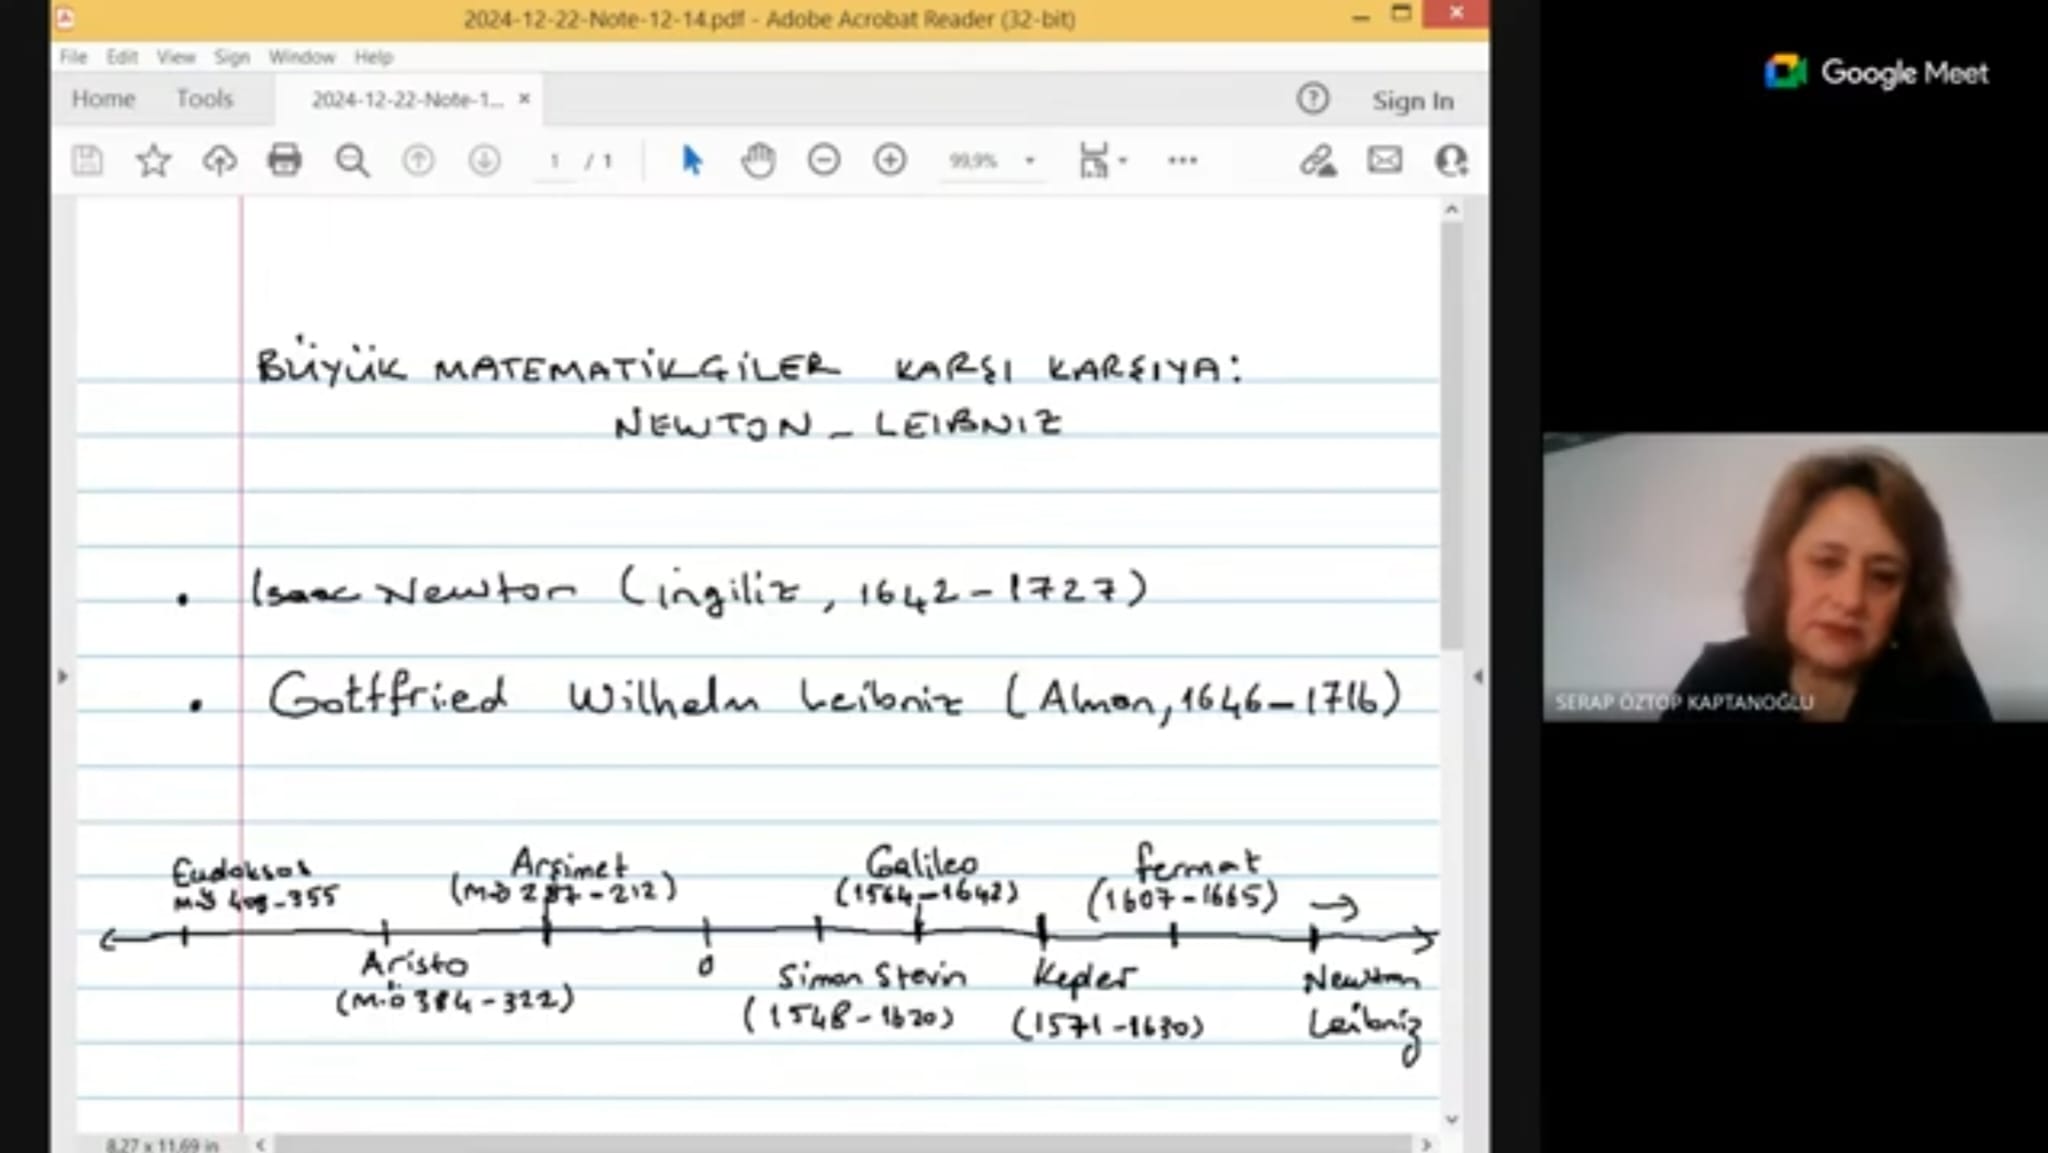 2024-12-22-Note-12-14.pdf - Adobe Acrobat Reader (32-bit)
File Edit View Sign Window Help
Home Tools 2024-12-22-Note-1... × Sign In
1 / 1 99,9%
Google Meet
BÜYÜK MATEMATİKÇİLER KARŞI KARŞIYA:
NEWTON - LEIBNIZ
• Isaac Newton (ingiliz, 1642-1727)
• Gottfried Wilhelm Leibniz (Alman, 1646-1716)
Eudoksos Arşimet Galileo fermat
M.Ö 408-355 (M.Ö 287-212) (1564-1642) (1607-1665)
Aristo 0 Simon Stevin Kepler Newton
(M.Ö 384-322) (1548-1620) (1571-1630) Leibniz
SERAP ÖZTOP KAPTANOĞLU
8,27 x 11,69 in